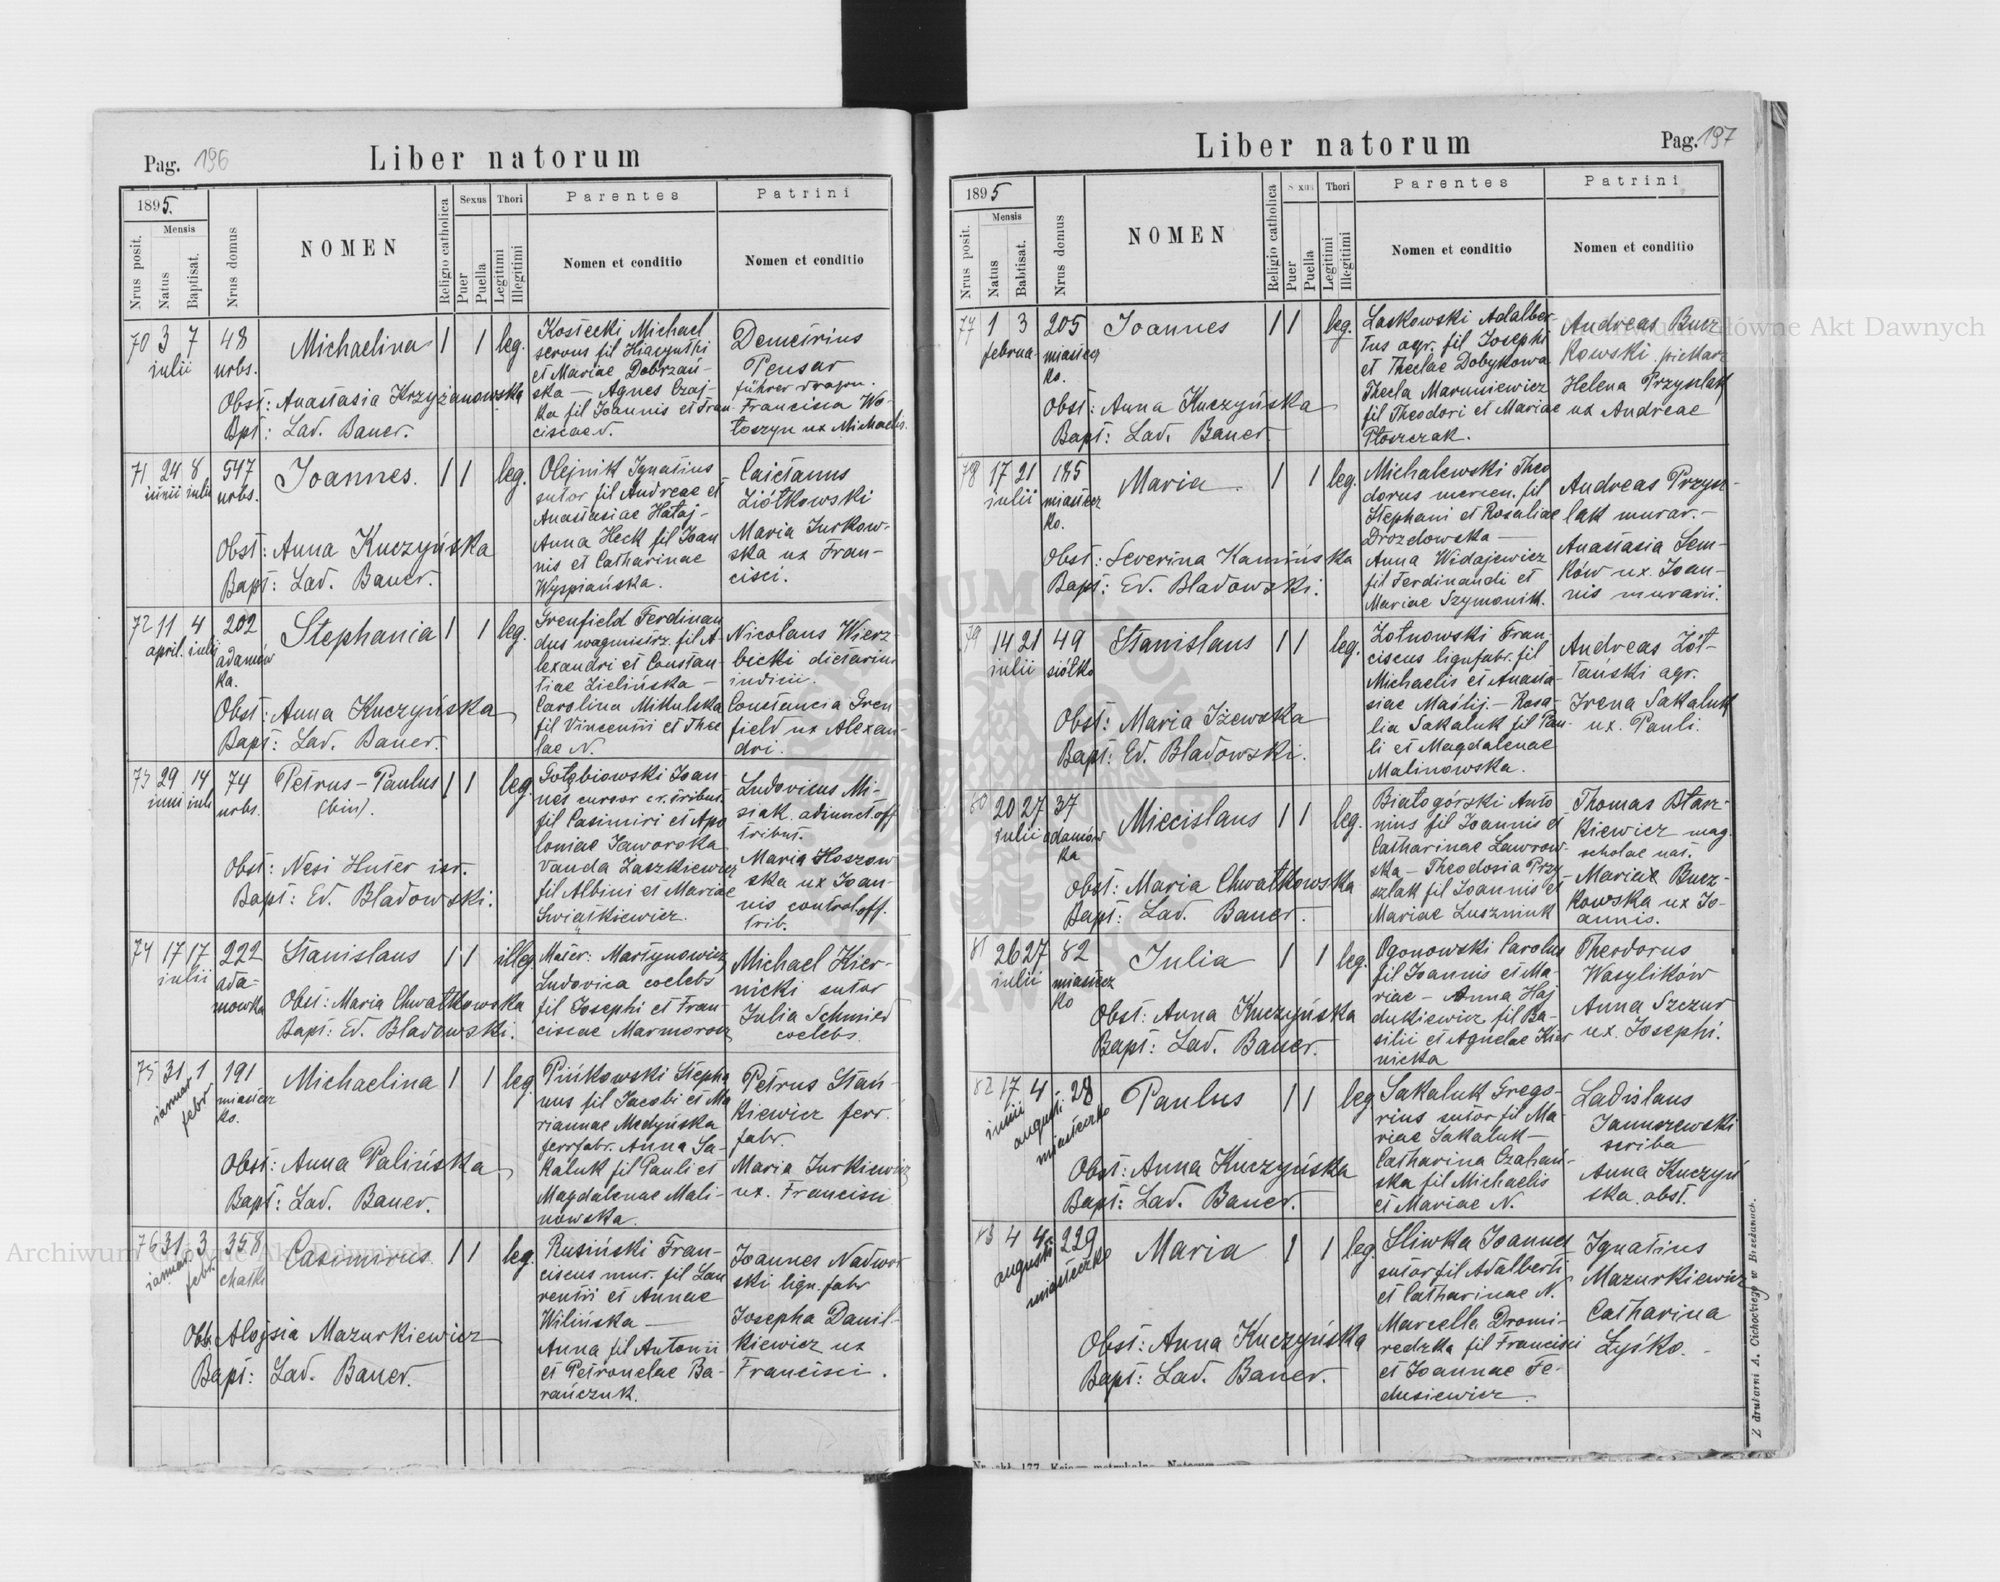 Pag. 196
Liber natorum
1895.
Nrus posit.
Mensis
Natus
Baptisat.
Nrus domus
NOMEN
Religio catholica
Sexus
Puer
Puella
Thori
Legitimi
Illegitimi
Parentes
Nomen et conditio
Patrini
Nomen et conditio
70 3 7 julii
48 urbs.
Michaelina 1 1 leg.
Obst: Anastasia Krzyżanowska
Bpt: Lad. Bauer.
Kostecki Michael
servus fil Hiacynthi
et Mariae Dobrzań-
ska — Agnes Czaj-
ka fil Joannis et Fran
ciscae N.
Demetrius
Pensar
führer dragon.
Francisca Wo-
łoszyn ux Michaelis.
71 24 junii 8 julii
547 urbs.
Joannes. 1 1 leg.
Obst: Anna Kuczyńska
Bapt: Lad. Bauer.
Olejnik Ignatius
sutor fil Andreae et
Anastasiae Hałaj-
Anna Heck fil Joan
nis et Catharinae
Wyspiańska.
Caietanus
Ziółkowski
Maria Jurkow-
ska ux Fran-
cisci.
72 11 april. 4 julii
202 adamów
ka.
Stephania 1 1 leg.
Obst: Anna Kuczyńska
Bapt: Lad. Bauer.
Grenfield Ferdinan
dus wagmistrz. fil A-
lexandri et Constan-
tiae Zielińska —
Carolina Mikulska
fil Vincentii et Thec
lae N.
Nicolaus Wierz-
bicki dietarius
indicii.
Constancia Gren
field ux Alexan-
dri.
73 29 junii 14 julii
74 urbs.
Petrus-Paulus 1 1 leg.
(bin).
Obst: Nesi Huter isr.
Bapt: Ed. Bladowski.
Gołębiowski Joan-
nes cursor cr. tribut.
fil Casimiri et Apo
loniae Jaworska
Vanda Zaszkiewicz
fil Albini et Mariae
Swiątkiewicz.
Ludovicus Mi-
siak. adiunct. off
tribut.
Maria Hoszow
ska ux Joan-
nis control. off.
trib.
74 17 17 julii
222 ada-
mowka
Stanislaus 1 1 illeg.
Obst: Maria Chwałkowska
Bapt: Ed. Bladowski.
Mater: Martynowicz
Ludovica coelebs
fil Josephi et Fran-
ciscae Marmorosz
Michael Kier-
nicki sutor
Julia Schmied
coelebs.
75 31 januar 1 febr
191 miastecz
ko.
Michaelina 1 1 leg.
Obst: Anna Palińska
Bapt: Lad. Bauer.
Pińkowski Stepha
nus fil Jacobi et Ma
riannae Medyńska
ferrfabr. Anna Sa-
kaluk fil Pauli et
Magdalenae Mali-
nowska.
Petrus Stań-
kiewicz ferr.
fabr.
Maria Jurkiewicz
ux. Francisci
76 31 januar. 3 febr.
358 chatki
Casimirus 1 1 leg.
Obst. Aloysia Mazurkiewicz
Bapt: Lad. Bauer.
Rusiński Fran-
ciscus mur. fil Lau
rentii et Annae
Wilińska —
Anna fil Antonii
et Petronelae Ba-
rańczuk.
Joannes Nadwor
ski lign. fabr
Josepha Danil-
kiewicz ux
Francisci.
Pag. 197
Liber natorum
1895
Nrus posit.
Mensis
Natus
Babtisat.
Nrus domus
NOMEN
Religio catholica
Sexus
Puer
Puella
Thori
Legitimi
Illegitimi
Parentes
Nomen et conditio
Patrini
Nomen et conditio
77 1 3 februa
205 miastecz
ko.
Joannes 1 1 leg.
Obst: Anna Kuczyńska
Bapt: Lad. Bauer.
Laskowski Adalber-
tus agr. fil Josephi
et Theclae Dobykowa
Thecla Maruniewicz
fil Theodori et Mariae
Ptoszczak.
Andreas Burz
kowski piekarz
Helena Przyszlak
ux Andreae
78 17 21 julii
185 miastecz
ko.
Maria 1 1 leg.
Obst: Severina Kamińska
Bapt: Ed. Bladowski.
Michalewski Theo
dorus mercen. fil
Stephani et Rosaliae
Drozdowska —
Anna Widajewicz
fil Ferdinandi et
Mariae Szymonik.
Andreas Przysz-
lak murar.-
Anastasia Sem-
ków ux. Joan-
nis murarii.
79 14 21 julii
49 siółko
Stanislaus 1 1 leg.
Obst: Maria Iżewska
Bapt: Ed. Bladowski.
Zołnowski Fran-
ciscus lignfabr. fil
Michaelis et Anasta-
siae Maślij. — Rosa-
lia Sakaluk fil Pau-
li et Magdalenae
Malinowska.
Andreas Żół-
tański agr.
Irena Sakaluk
ux. Pauli.
80 20 27 julii
37 adamów
ka
Miecislaus 1 1 leg.
Obst: Maria Chwałkowska
Bapt: Lad. Bauer.
Białogórski Anto
nius fil Joannis et
Catharinae Lawrow-
ska — Theodosia Przy
szlak fil Joannis et
Mariae Luszniuk
Thomas Błaz-
kiewicz mag.
scholae nat.
Mariae Burz-
kowska ux Jo-
annis.
81 26 27 julii
82 miastecz
ko
Julia 1 1 leg.
Obst: Anna Kuczyńska
Bapt: Lad. Bauer.
Ogonowski Carolus
fil Joannis et Ma-
riae — Anna Haj
dukiewicz fil Ba-
silii et Agnelae Kier
nicka
Theodorus
Wasylików
Anna Szczur
ux. Josephi.
82 17 junii 4 augusti
28 miasteczko
Paulus 1 1 leg
Obst: Anna Kuczyńska
Bapt: Lad. Bauer.
Sakaluk Grego-
rius sutor fil Ma-
riae Sakaluk —
Catharina Czahań-
ska fil Michaelis
et Mariae N.
Ladislaus
Januszewski
scriba
Anna Kuczyń
ska obst.
83 4 4 augusti
229 miasteczko
Maria 1 1 leg.
Obst: Anna Kuczyńska
Bapt: Lad. Bauer.
Sliwka Joannes
sutor fil Adalberti
et Catharinae N.
Marcella Dromi-
redzka fil Francisci
et Joannae Fe-
dusiewicz.
Ignatius
Mazurkiewicz
Catharina
Łyśko.
Z drukarni A. Cichockiego w Brzeżanach.
Archiwum Główne Akt Dawnych
Archiwum Główne Akt Dawnych